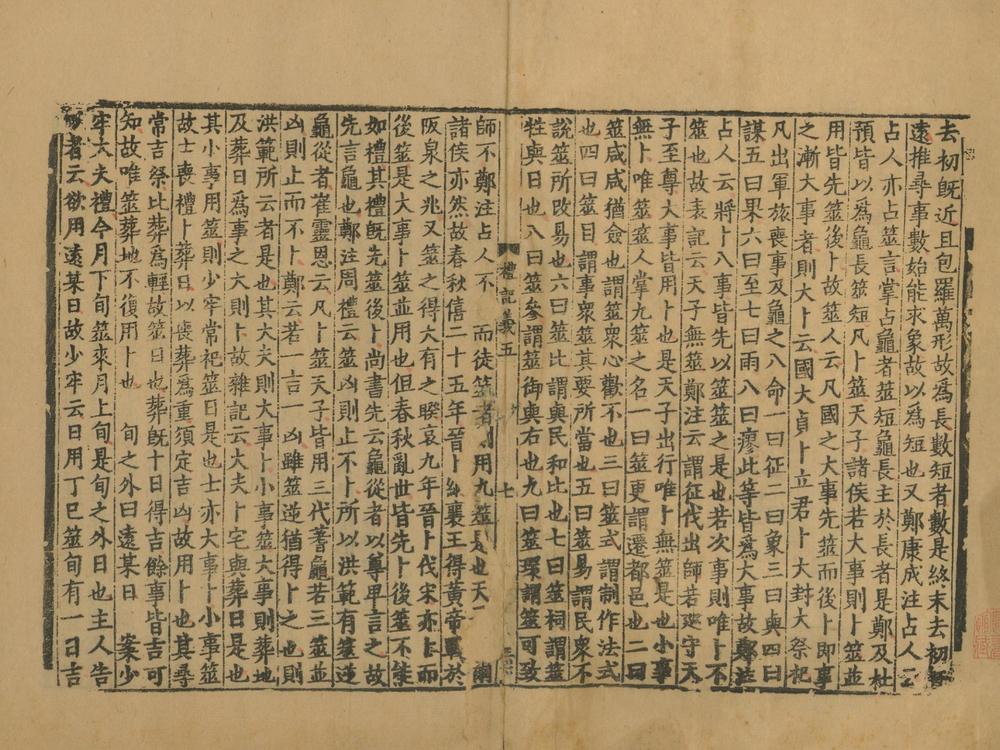 去初旣近且包羅萬形故爲長數短者數是終末去初旣
遠推尋事數始能求象故以爲短也又鄭康成注占人云
占人亦占筮言掌占龜者筮短龜長主於長者是鄭及杜
預皆以爲龜長筮短凡卜筮天子諸侯若大事則卜筮並
用皆先筮後卜故筮人云凡國之大事先筮而後卜即事
之漸大事者則大卜云國大貞卜立君卜大封大祭祀
凡出軍旅喪事及龜之八命一曰征二曰象三曰與四曰
謀五曰果六曰至七曰雨八曰瘳此等皆爲大事故鄭注
占人云將卜八事皆先以筮筮之是也若次事則唯卜不
筮也故表記云天子無筮鄭注云謂征伐出師若巡守天
子至尊大事皆用卜也是天子出行唯卜無筮是也小事
無卜唯筮筮人掌九筮之名一曰筮更謂遷都邑也二曰
筮咸咸猶僉也謂筮衆心歡不也三曰筮式謂制作法式
也四曰筮目謂事衆筮其要所當也五曰筮易謂民衆不
說筮所改易也六曰筮比謂與民和比也七曰筮祠謂筮
牲與日也八曰筮參謂筮御與右也九曰筮環謂筮可致
禮記義五 七
師不鄭注占人不 而徒筮者則用九筮是也天子
諸侯亦然故春秋僖二十五年晉卜納襄王得黃帝戰於
阪泉之兆又筮之得大有之睽哀九年晉卜伐宋亦卜而
後筮是大事卜筮並用也但春秋亂世皆先卜後筮不能
如禮其禮旣先筮後卜尚書先云龜從者以尊卑言之故
先言龜也鄭注周禮云筮凶則止不卜所以洪範有筮逆
龜從者崔靈恩云凡卜筮天子皆用三代蓍龜若三筮並
凶則止而不卜鄭云若一吉一凶雖筮逆猶得卜之也則
洪範所云者是也其大夫則大事卜小事筮大事則葬地
及葬日爲事之大則卜故雜記云大夫卜宅與葬日是也
其小事用筮則少牢常祀筮日是也士亦大事卜小事筮
故士喪禮卜葬日以喪葬爲重須定吉凶故用卜也其尋
常吉祭比葬爲輕故筮日也葬旣十日得吉餘事皆吉可
知故唯筮葬地不復用卜也 旬之外曰遠某日 案少
牢大夫禮今月下旬筮來月上旬是旬之外日也主人告
筮者云欲用遠某日故少牢云日用丁巳筮旬有一日吉